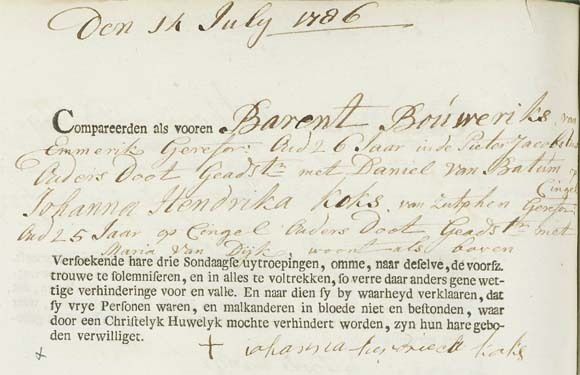 Den 14 July 1786
Compareerden als vooren Barent Bouweriks, van
Emmerik Gerefor: Oud 26 Jaar in de Pieter Jacobstraat
Ouders Doot Geadstn met Daniel van Batum op
Cingel
Johanna Hendrika Koks, van Zutphen Gerefor:
Oud 25 Jaar op Cingel Ouders Doot, Geadstn met
Maria van Dijk, woont als boven
Versoekende hare drie Sondaagse uytroepingen, omme, naar deselve, de voorsz.
trouwe te solemniseren, en in alles te voltrekken, so verre daar anders gene wet-
tige verhinderinge voor en valle. En naar dien sy by waarheyd verklaaren, dat
sy vrye Personen waren, en malkanderen in bloede niet en bestonden, waar
door een Christelyk Huwelyk mochte verhindert worden, zyn hun hare gebo-
den verwilliget.
johanna koks